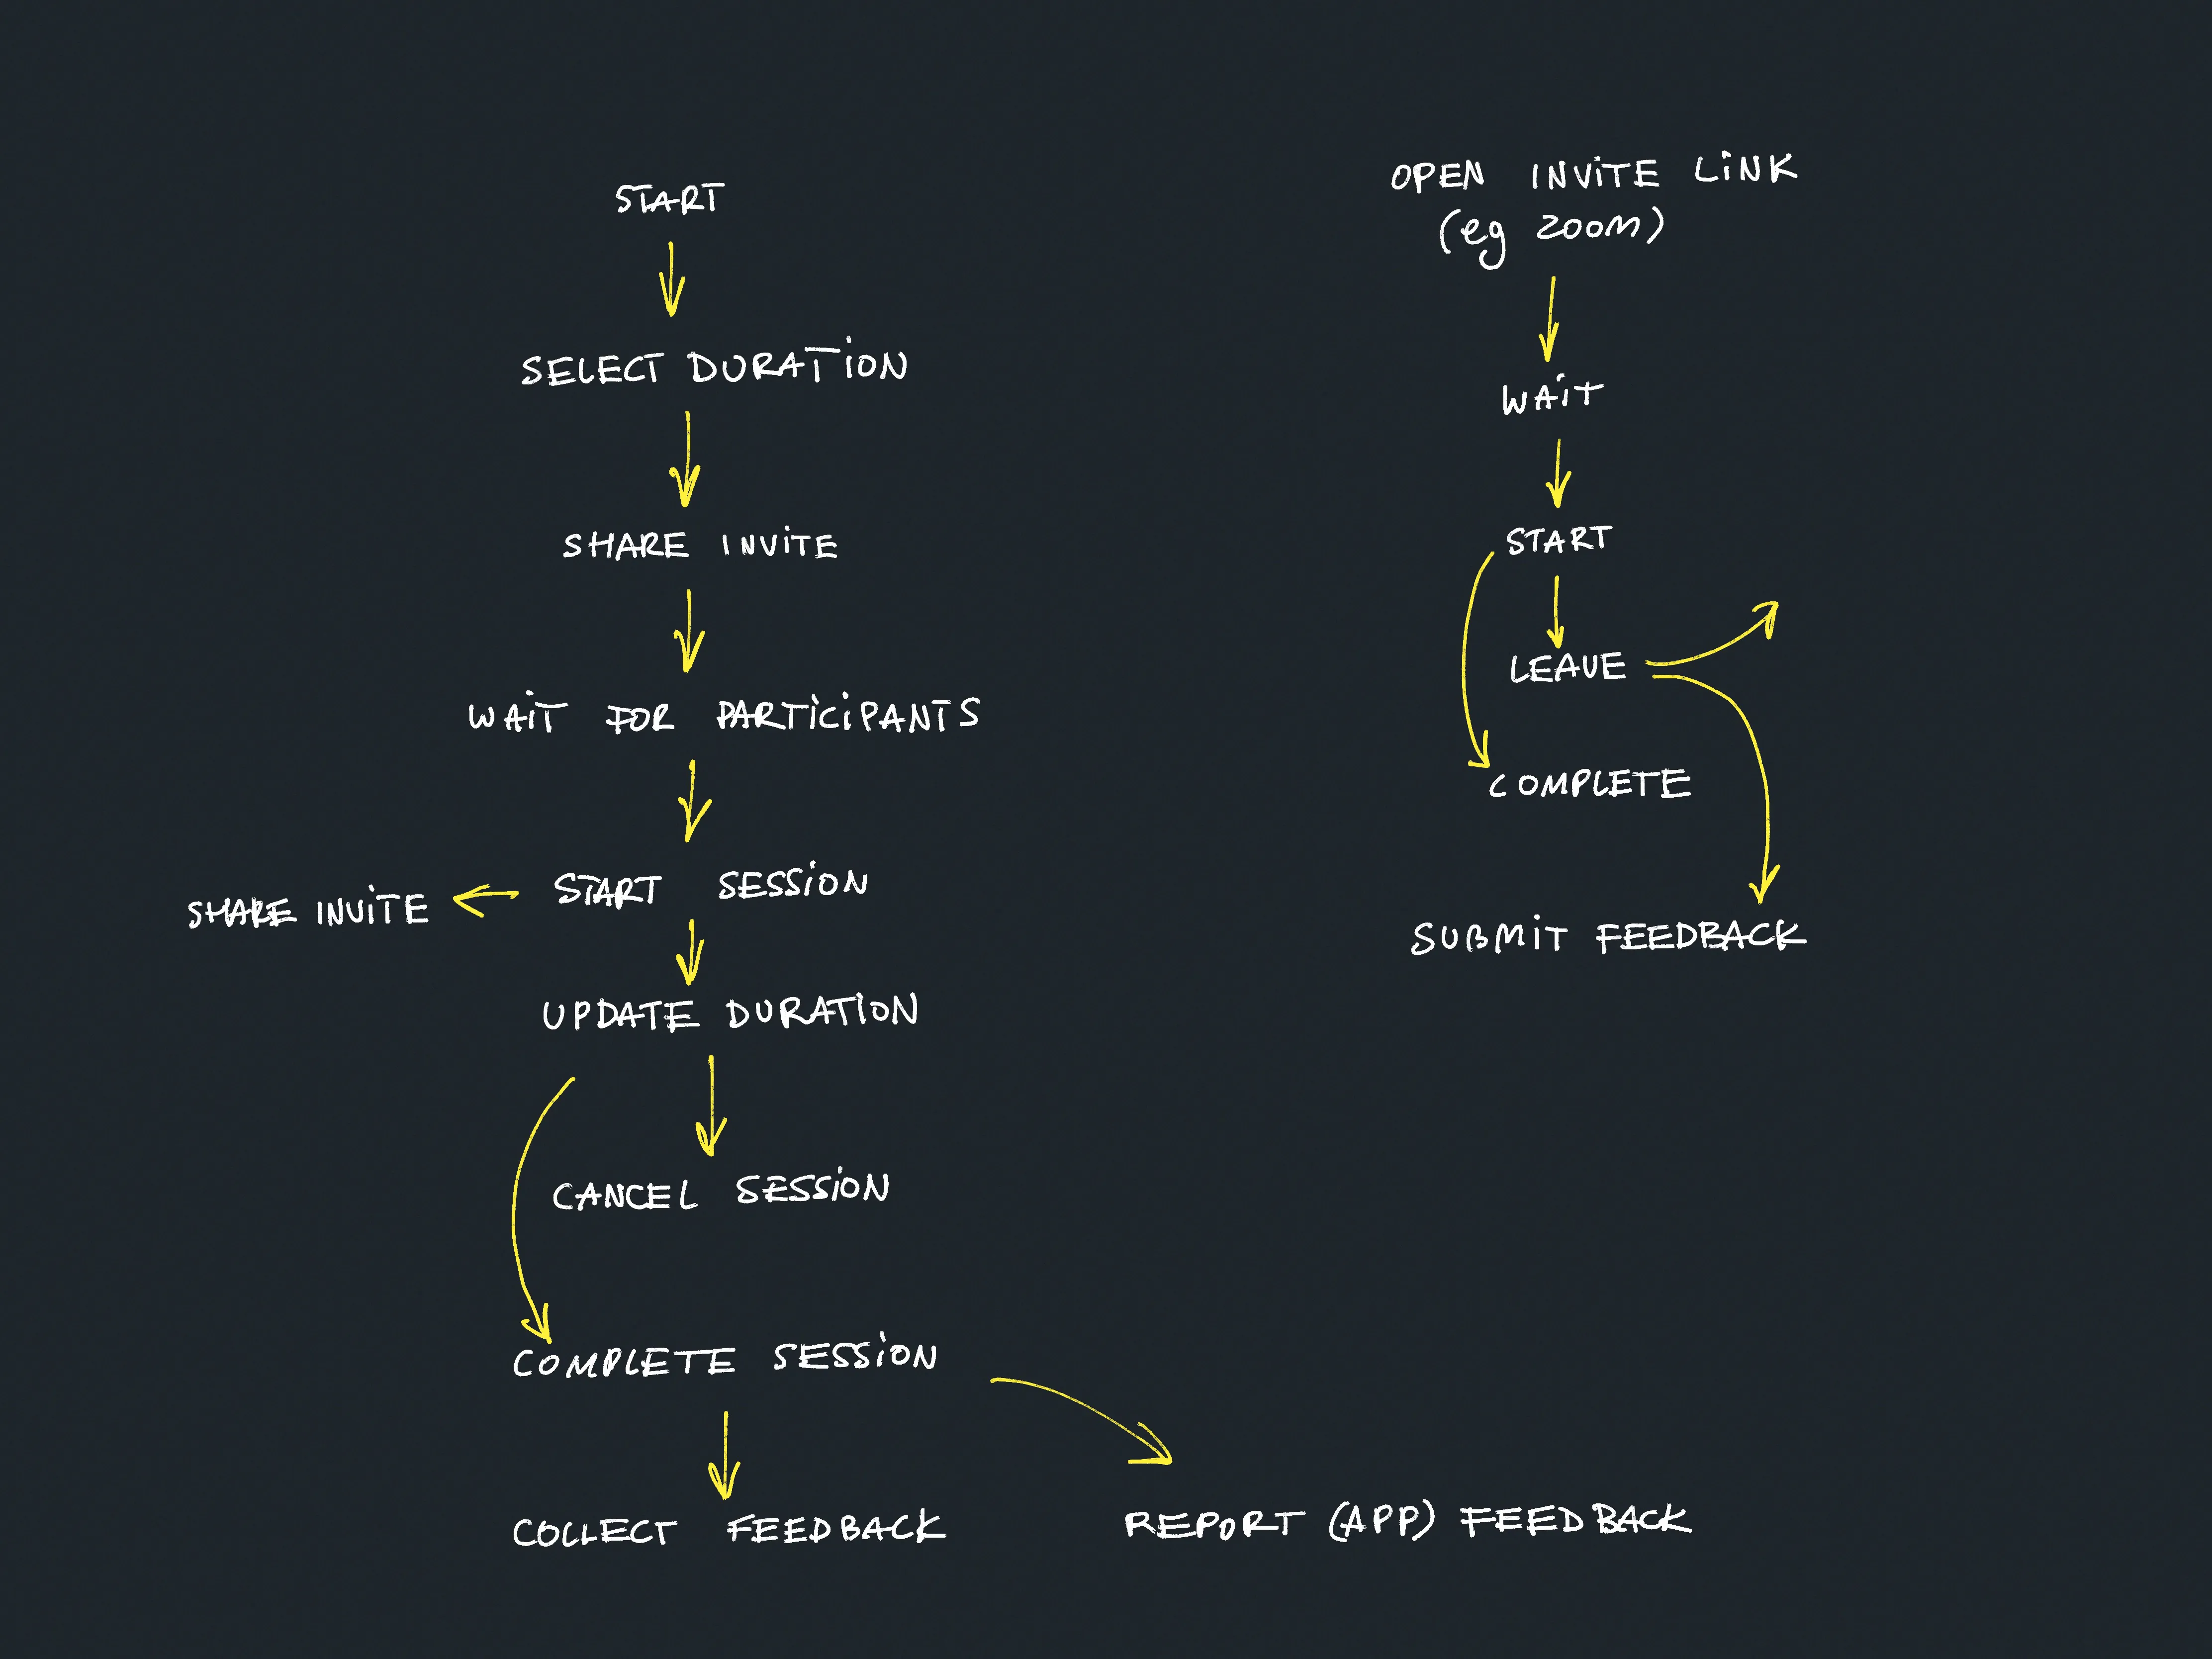 START
SELECT DURATION
SHARE INVITE
WAIT FOR PARTICIPANTS
START SESSION
SHARE INVITE
UPDATE DURATION
CANCEL SESSION
COMPLETE SESSION
COLLECT FEEDBACK
REPORT (APP) FEEDBACK
OPEN INVITE LINK
(eg ZOOM)
WAIT
START
LEAVE
COMPLETE
SUBMIT FEEDBACK